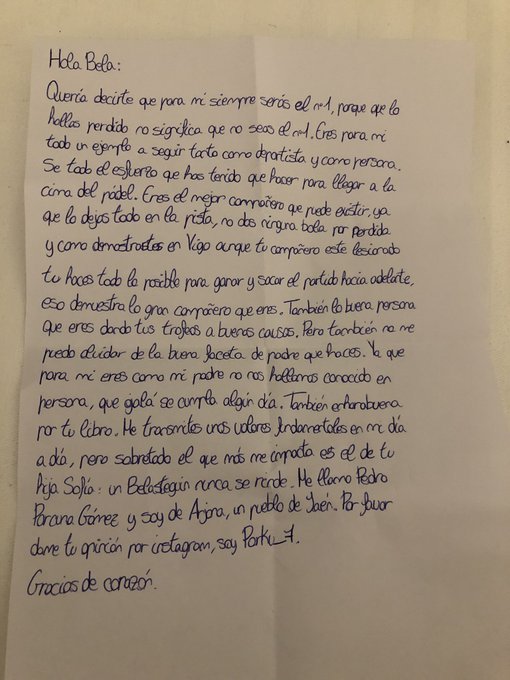 Hola Bela:
Quería decirte que para mi siempre serás el nº1, porque que lo
hallas perdido no significa que no seas el nº1. Eres para mi
todo un ejemplo a seguir tanto como deportista y como persona.
Se todo el esfuerzo que has tenido que hacer para llegar a la
cima del pádel. Eres el mejor compañero que puede existir, ya
que lo dejas todo en la pista, no das ninguna bola por perdida
y como demostrastes en Vigo aunque tu compañero este lesionado
tu haces todo lo posible para ganar y sacar el partido hacia adelante,
eso demuestra lo gran compañero que eres. También lo buena persona
que eres dando tus trofeos a buenas causas. Pero también no me
puedo olvidar de la buena faceta de padre que haces. Ya que
para mi eres como mi padre no nos hallamos conocido en
persona, que ojalá se cumpla algún día. También enhorabuena
por tu libro. Me transmites unos valores fundamentales en mi día
a día, pero sobretodo el que más me impacta es el de tu
hija Sofía: un Belasteguín nunca se rinde. Me llamo Pedro
Parcuna Gómez y soy de Arjona, un pueblo de Jaén. Por favor
dame tu opinión por instagram, soy Parku_7.
Gracias de corazón.